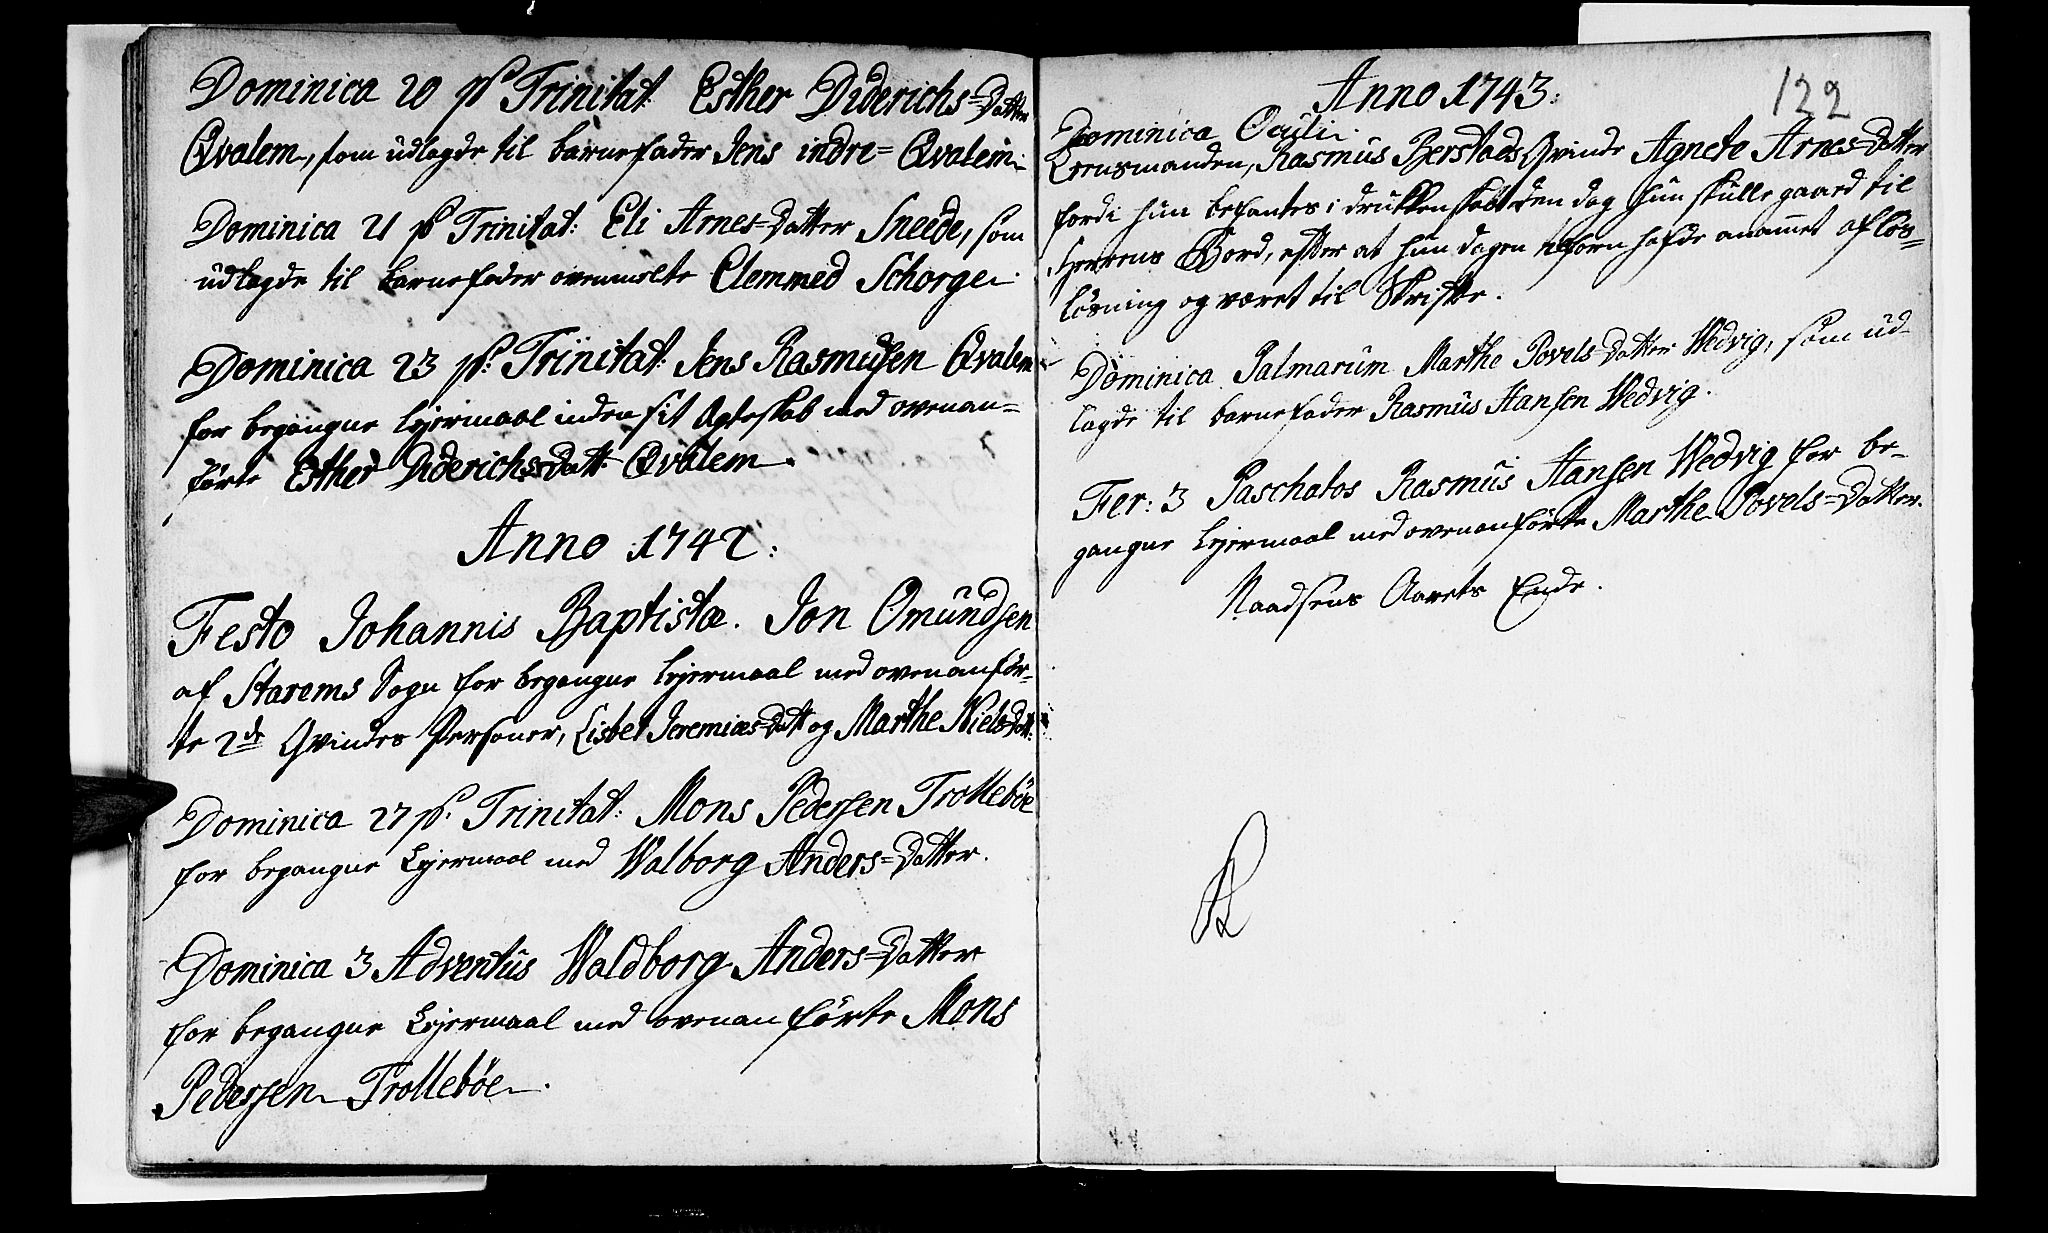 Dominica 20 p Trinitat: Esther Diderichs=Datter
Qvalem, som udlagde til barnefader Jens indre= Qvalem.
Dominica 21 p Trinitat: Eli Arnes=Datter Sneede, som
udlagde til barnefader ovenmelte Clemmed Schorge.
Dominica 23 p: Trinitat: Jens Rasmusen Qvalem
for begangne Lejermaal inden sit Ægteskab med ovenan=
förte Esther Diderichs=Datt: Qvalem.
Anno 1742:
Festo Johannis Baptistæ. Jon Omundsen
af Starems Sogn for begangne Lejermaal med ovenanför=
te 2de Qvindes Personer, Lisbet Jeremiæs=Datt og Marthe Niels=Datt:
Dominica 27 p. Trinitat: Mons Pederssen Trollebøe
for begangne Lejermaal med Walborg Anders=Datter.
Dominica 3 Adventüs Waldborg Anders=Datter
for begangne Lejermaal med ovenanförte Mons
Pederssen Trollebøe.
122
Anno 1743:
Dominica Oculi.
Lensmanden, Rasmus Berstads Qvinde Agnete Arnes=Datter
fordi hun befantes i drukkenskab den dag hun skulle gaaed til
Herrens Bord, efter at hun dagen tilforn hafde anammet aflös=
lösning og været til Skrifte.
Dominica Palmarum Marthe Povels=Datter Wedvig, som ud=
lagde til barnefader Rasmus Hansen Wedvig.
Fer: 3 Paschatos Rasmus Hansen Wedvig for be=
gangne Lejermaal med ovenanförte Marthe Povels=Datter.
Naadsens Aarets Ende.